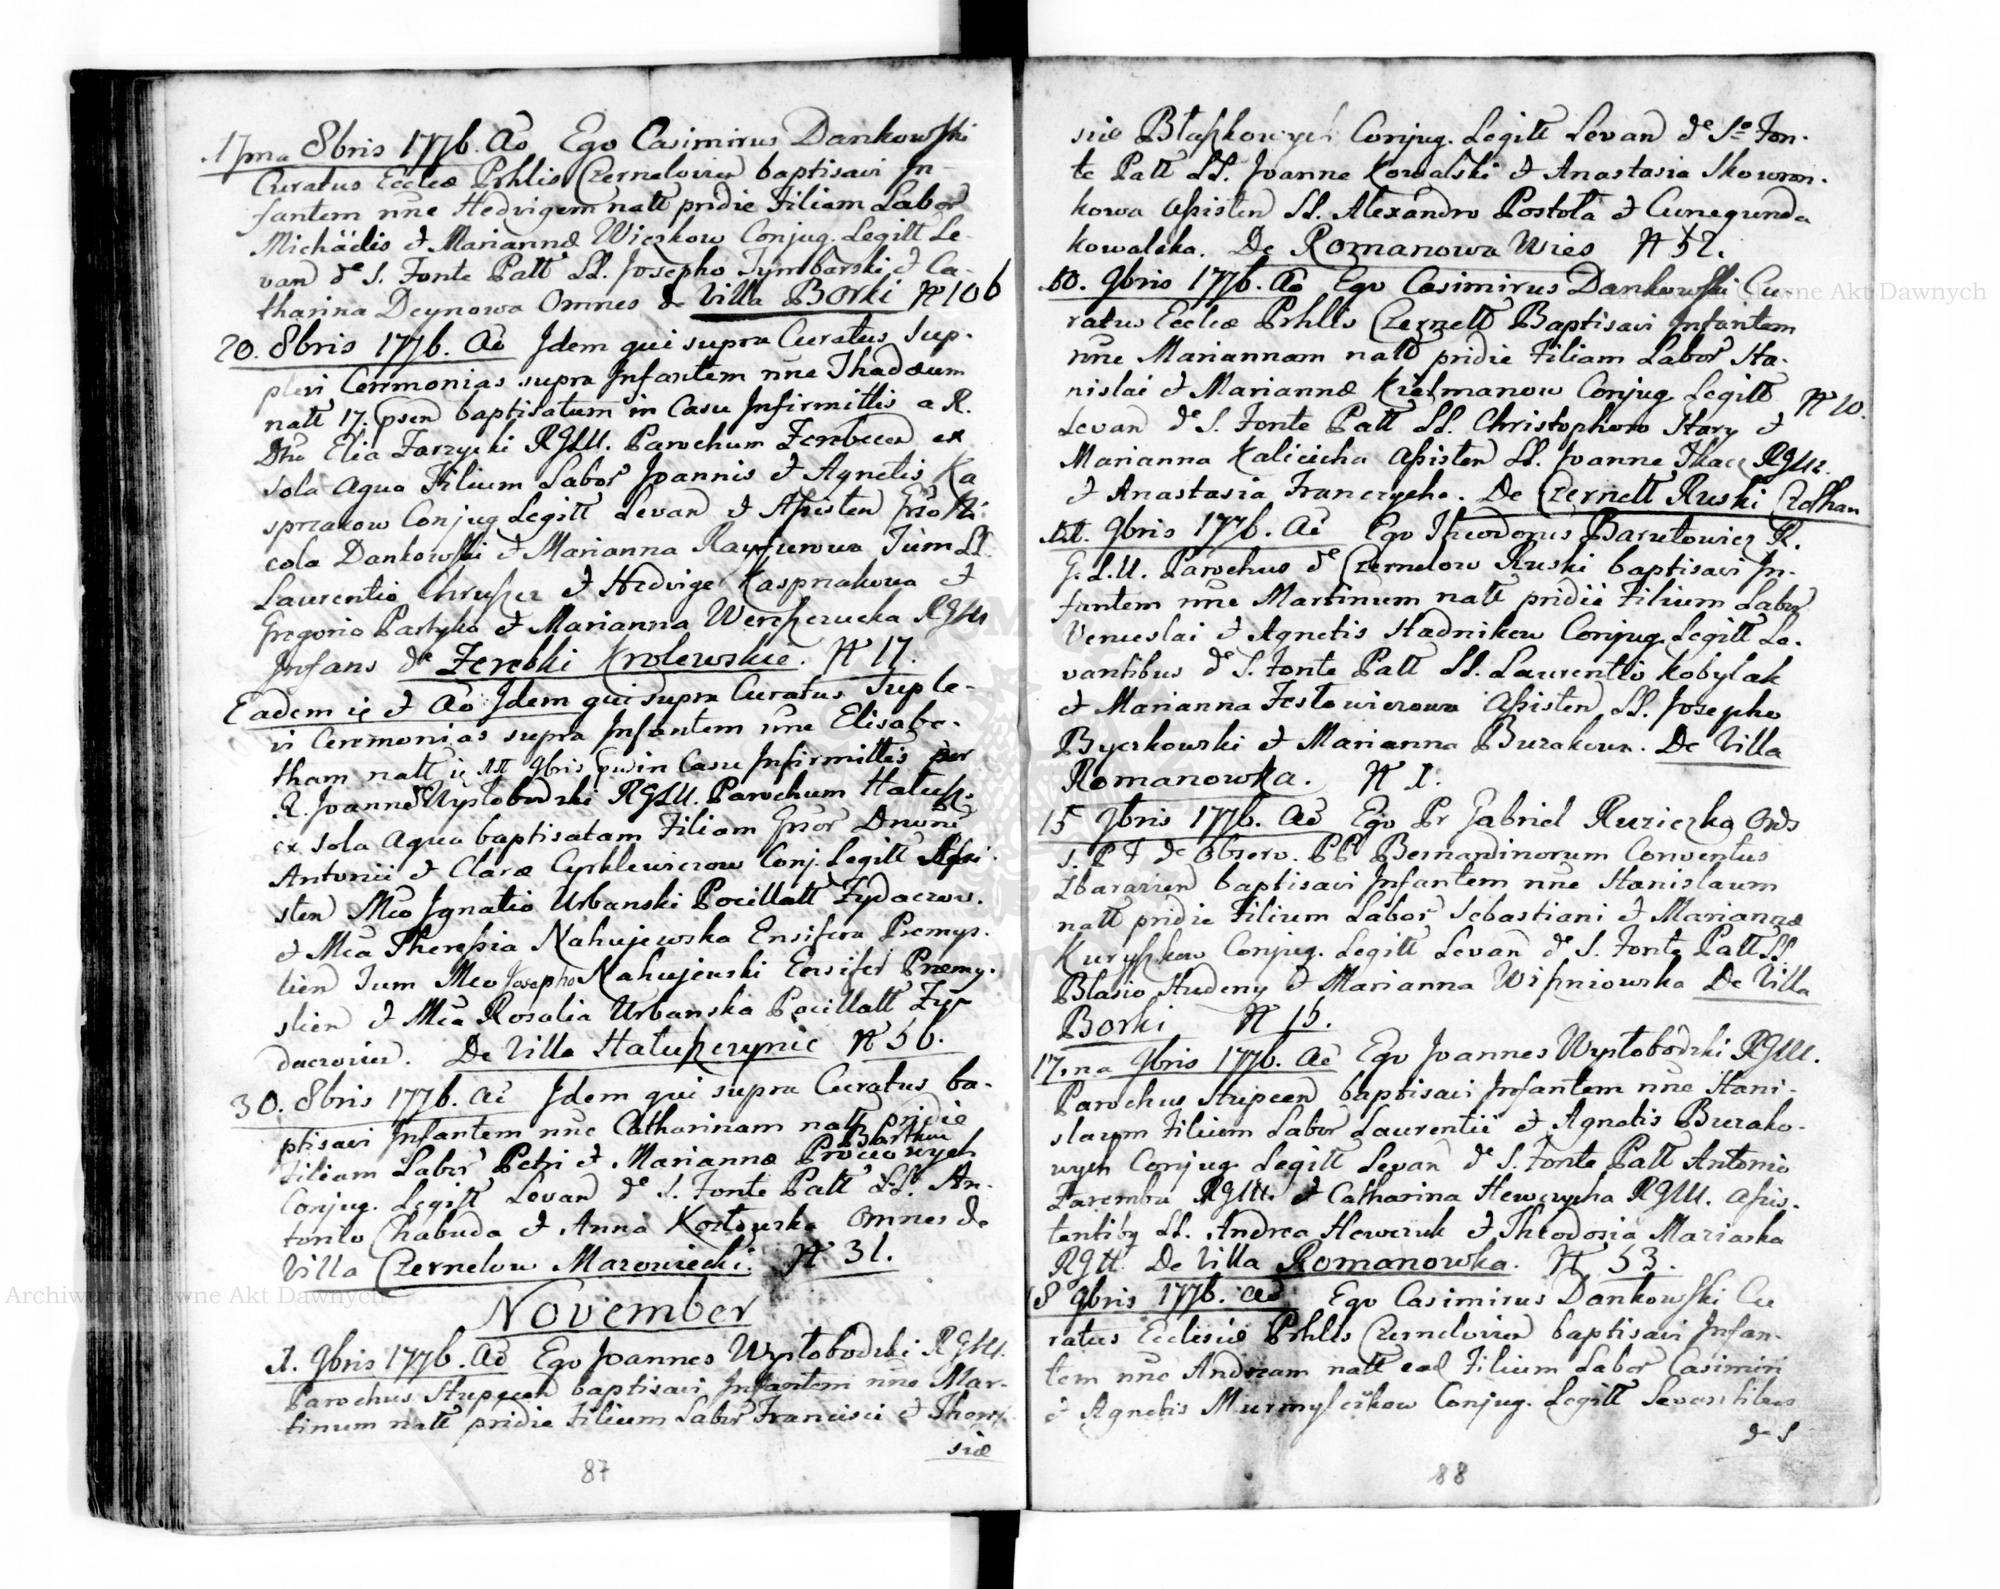 17ma 8bris 1776. Ao Ego Casimirus Dankowski
Curatus Eccleæ Prhlis Czernelovien baptisavi In-
fantem nne Hedvigem natt pridie Filiam Labor
Michaelis et Mariannæ Wiczkow Conjug. Legitt Le-
van de S. Fonte Patt LL. Josepho Tymbarski et Ca-
tharina Deynowa Omnes de Villa Borki N 106
20. 8bris 1776. Ao Idem qui supra Curatus Sup-
plevi Ceremonias supra Infantem nne Thadæum
natt 17. psen baptisatum in Casu Infirmittis a R.
Dno Elia Zarzycki RGLU. Parochum Zerebcen ex
sola aqua Filium Labor Joannis et Agnetis Ka
sprzakow Conjug Legitt Levan et Assisten Gnso Ni
cola Dankowski et Marianna Tum LL.
Laurentio et Hedvige Kasprzakowa et
Gregorio Partyka et Marianna RGLU
Infans de Zerebki Krolewskie. N 17.
Eadem ie et Ao Idem qui supra Curatus Suple-
vi Ceremonias supra Infantem nne Elisabe-
tham natt in Casu Infirmittis per
R. Joannes Wysłobodzki RGLU. Parochum Hałusz.
ex sola aqua baptisatam Filiam Gnsor Dnorum
Antonii et Claræ Cyrklewiczow Conj. Legitt Assi-
sten Mco Ignatio Urbanski Pocillatt Zydaczow.
et Mca Theressia Nahujewska Ensifera Premys-
lien Tum Mco Josepho Nahujewski Ensifer Præmy-
slien et Mca Rosalia Urbanska Pocillatt Zy-
daczovien. De Villa Hałuszczynie N 56.
30. 8bris 1776. Ao Idem qui supra Curatus ba-
ptisavi Infantem nne Catharinam natt pridie
Filiam Labor Petri et Mariannæ
Conjug. Legitt Levan de S. Fonte Patt LL. An-
tonio Chabuda et Anna Kozłowska Omnes de
Villa Czernelow Mazowiecki. N 31.
November
1. 9bris 1776. Ao Ego Joannes Wysłobodzki RGLU.
Parochus Stupecen baptisavi Infantem nne Mar-
tinum natt pridie Filium Labor Francisci et There-
siæ
87
siæ Błaszkowych Conjug. Legitt Levan de So Fon-
te Patt LL. Joanne Kowalski et Anastasia Skowron-
kowa Assisten LL. Alexandro Postoła et Cunegunda
Kowalska. De Romanowa Wies N 52.
10. 9bris 1776. Ao Ego Casimirus Dankowski Cu-
ratus Eccleæ Prhlis Czernell Baptisavi Infantem
nne Mariannam natt pridie Filiam Labor Sta-
nislai et Mariannæ Kielmanow Conjug Legitt N 20.
Levan de S. Fonte Patt LL. Christophoro Stary et
Marianna Kalicicha Assisten LL. Joanne Tkacz RGLU.
et Anastasia Franczycha. De Czernell Ruski
9bris 1776. Ao Ego Theodorus Barutowicz R.
G. L. U. Parochus de Czernelow Ruski baptisavi In-
fantem nne Martinum natt pridie Filium Labor
Venceslai et Agnetis Stadnikow Conjug. Legitt Le-
vantibus de S. Fonte Patt LL. Laurentio Kobylak
et Marianna Festowiczowa Assisten LL. Josepho
Byczkowski et Marianna Burakowa. De Villa
Romanowka. N 1.
15 9bris 1776. Ao Ego Pr Gabriel Ruziczka Ords
S. P F de Observ. PP Bernardinorum Conventus
Zbaravien baptisavi Infantem nne Stanislaum
natt pridie Filium Labor Sebastiani et Mariannæ
Kuryszkow Conjug. Legitt Levan de S. Fonte Patt LL
Blasio Studeny et Marianna Wiszniowska De Villa
Borki N 15.
17.ma 9bris 1776. Ao Ego Joannes Wysłobodzki RGLU.
Parochus Stupecen baptisavi Infantem nne Stani-
slaum Filium Labor Laurentii et Agnetis Burako-
wych Conjug Legitt Levan de S. Fonte Patt Antonio
Zaremba RGLU. et Catharina Hewczycha RGLU. Assis-
tentibq LL. Andrea Hewczuk et Theodosia Maziarka
RGLU. De Villa Romanowka. N 53.
18 9bris 1776. Ao Ego Casimirus Dankowski Cu
ratus Eclesiæ Prhlis Czernelovien baptisavi Infan-
tem nne Andream natt ead Filium Labor Casimiri
et Agnetis Conjug. Legitt Levantibus
de S
88
Archiwum Główne Akt Dawnych
Archiwum Główne Akt Dawnych